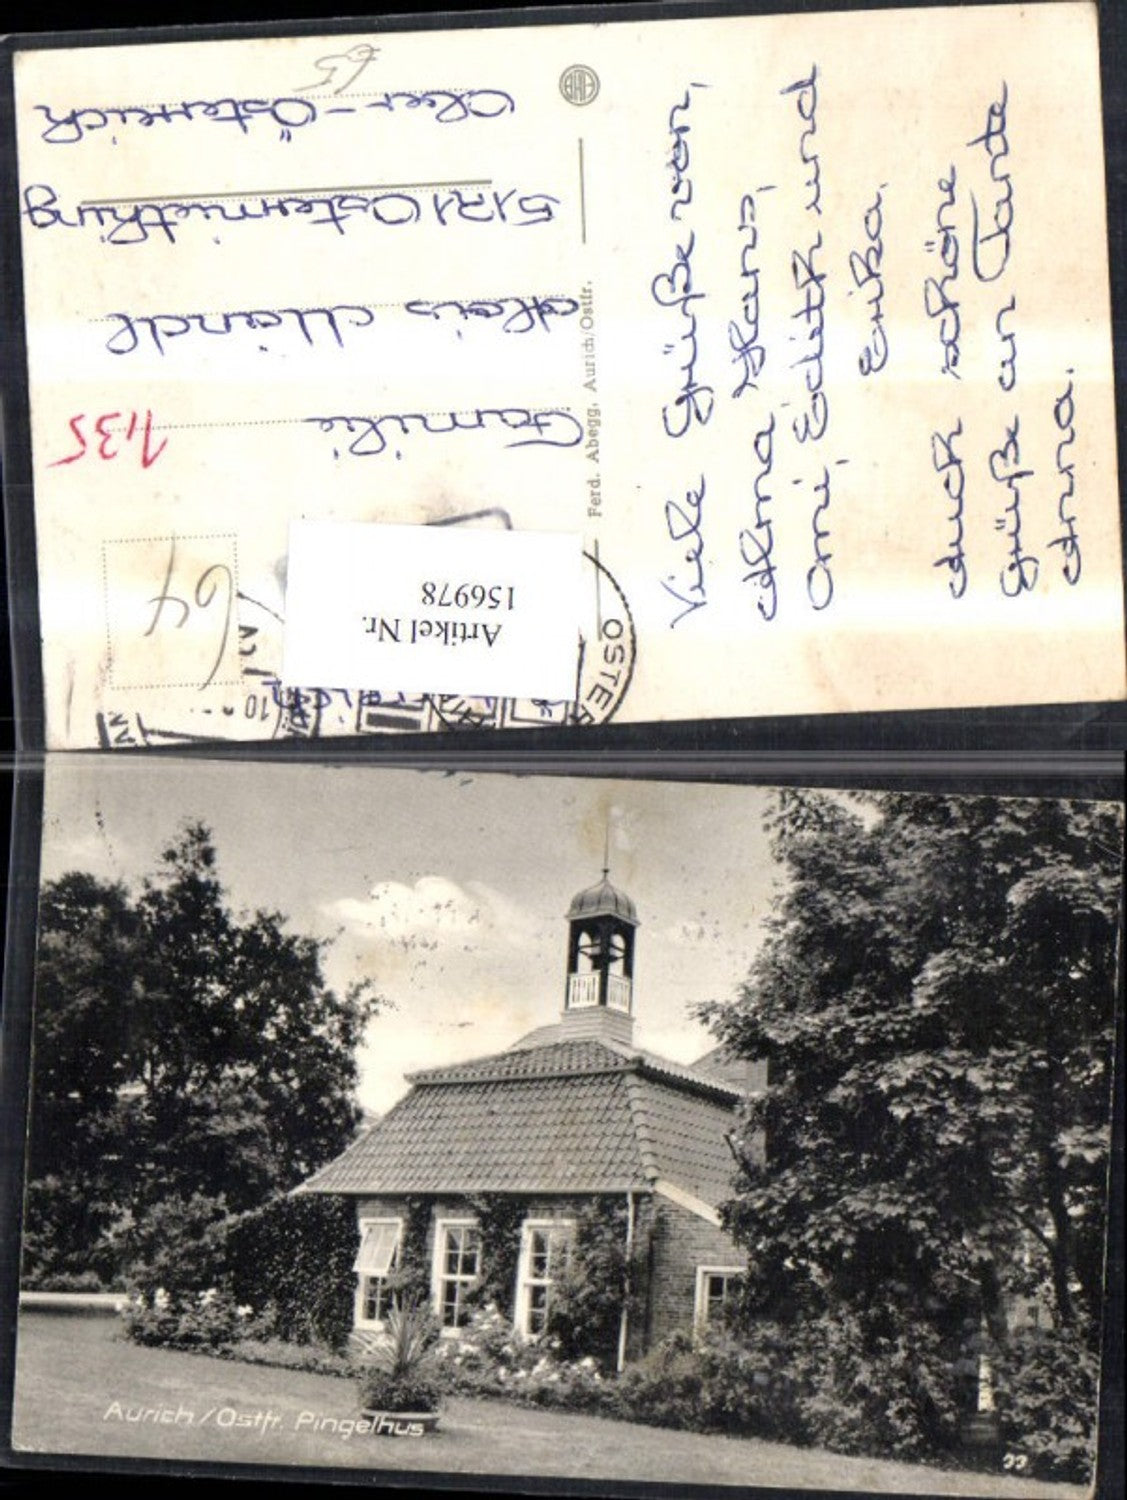 Viele Grüße von,
Alma, Hans,
Omi, Edith und
Erika.
Auch schöne
Grüße an Tante
Anna.
Ferd. Abegg, Aurich/Ostfr.
Familie
Alois Mandl
5121 Ostermiething
Ober-Österreich
65
1,35
64
Artikel Nr.
156978
OSTER
10
Aurich/Ostfr. Pingelhus